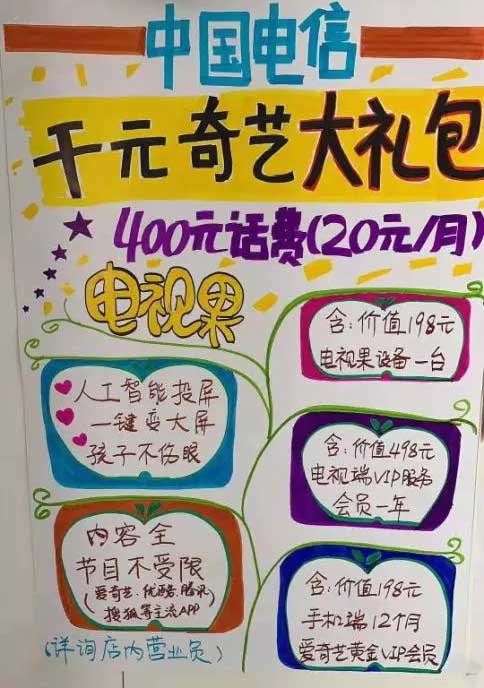 中国电信
千元奇艺大礼包
400元话费(20元/月)
电视果
含:价值198元
电视果设备一台
人工智能投屏
一键变大屏
孩子不伤眼
含:价值498元
电视端VIP服务
会员一年
内容全
节目不受限
(爱奇艺·优酷·腾讯)
搜狐等主流APP
含:价值198元
手机端12个月
爱奇艺黄金VIP会员
(详询店内营业员)